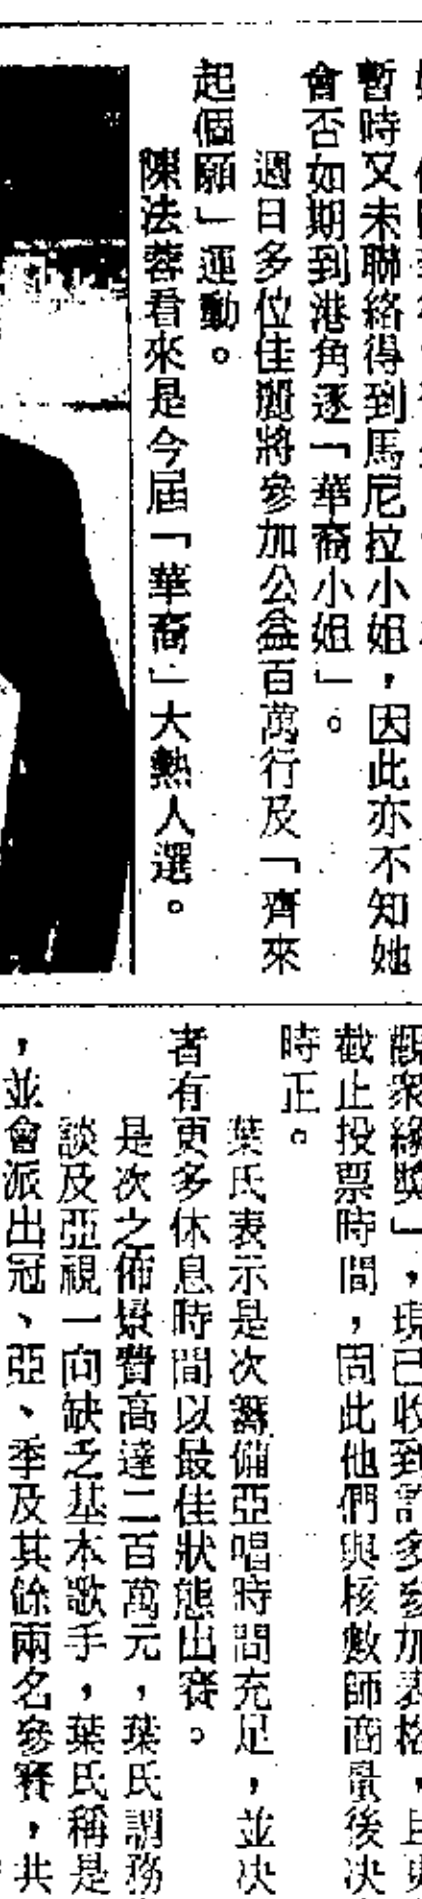 暫時又未聯絡得到馬尼拉小姐，因此亦不知她
會否如期到港角逐「華裔小姐」。
週日多位佳麗將參加公益百萬行及「齊來
起個願」運動。
陳法蓉看來是今屆「華裔」大熱人選。
觀衆緣獎」，現已收到許多參加表格，且
截止投票時間，因此他們與核數師商量後决
時正。
葉氏表示是次籌備亞唱時間充足，並决
者有更多休息時間以最佳狀態出賽。
是次之佈景費高達二百萬元，葉氏謂務
談及亞視一向缺乏基本歌手，葉氏稱是
，並會派出冠、亞、季及其餘兩名參賽，共